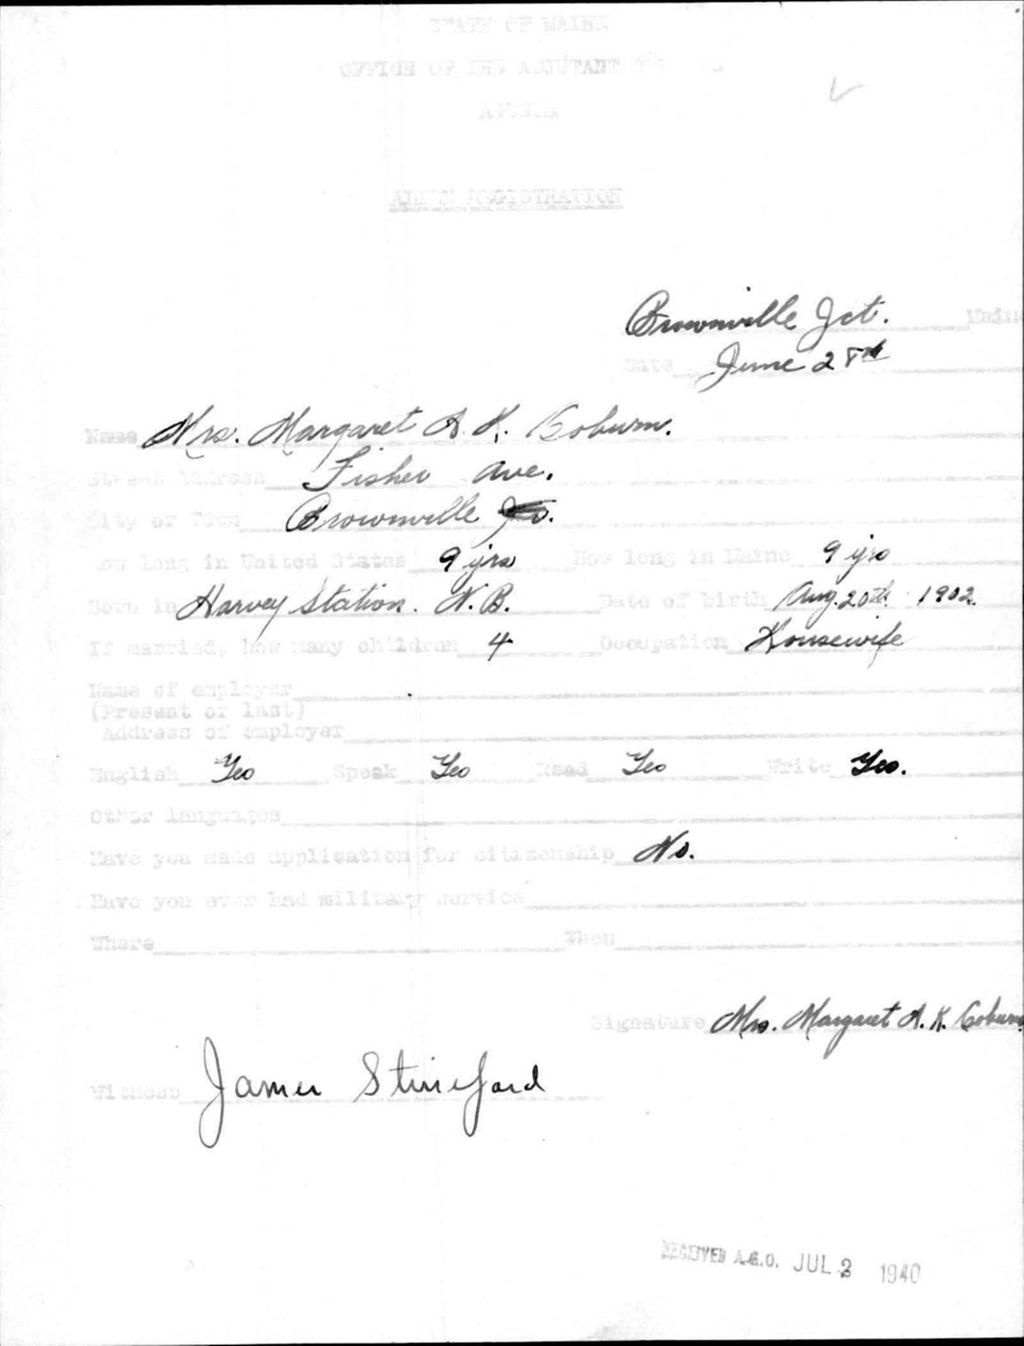 STATE OF MAINE
OFFICE OF THE ADJUTANT GENERAL
AUGUSTA
ALIEN REGISTRATION
Brownville Jct. Maine
Date June 28th
Name Mrs. Margaret A. K. Coburn.
Street Address Fisher Ave.
City or Town Brownville
How long in United States 9 yrs How long in Maine 9 yrs
Born in Harvey Station. N.B. Date of birth Aug. 20th 1902.
If married, how many children 4 Occupation Housewife
Name of employer
(Present or last)
Address of employer
English Yes Speak Yes Read Yes Write Yes.
Other languages
Have you made application for citizenship No.
Have you ever had military service
Where When
Signature Mrs. Margaret A. K. Coburn
Witness James
RECEIVED A.G.O. JUL 2 1940